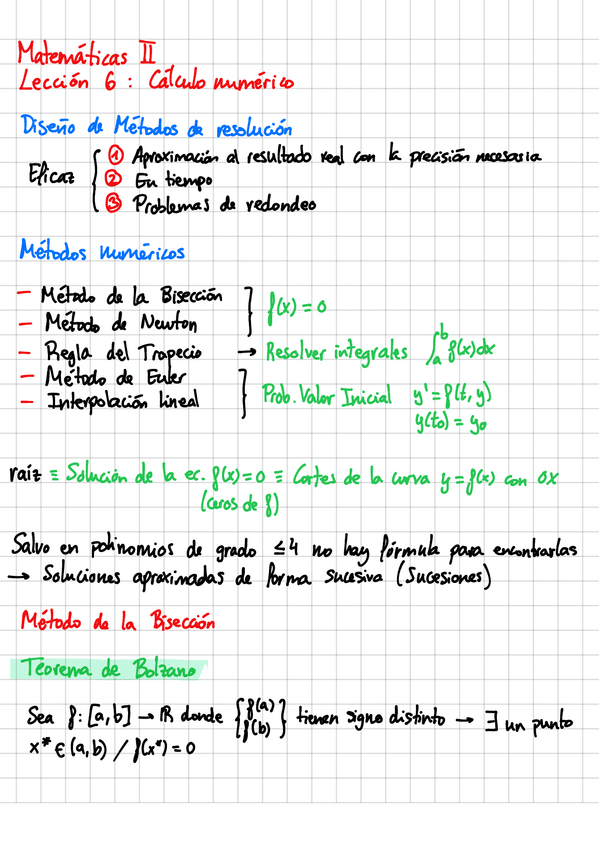 Matemáticas II
Lección 6 : Cálculo numérico
Diseño de Métodos de resolución
Eficaz
① Aproximación al resultado real con la precisión necesaria
② En tiempo
③ Problemas de redondeo
Métodos numéricos
- Método de la Bisección
- Método de Newton
f(x) = 0
- Regla del Trapecio → Resolver integrales ∫ₐᵇ f(x)dx
- Método de Euler
- Interpolación lineal
Prob. Valor Inicial y' = f(t, y)
y(t₀) = y₀
raíz ≡ Solución de la ec. f(x)=0 ≡ Cortes de la curva y = f(x) con OX
(ceros de f)
Salvo en polinomios de grado ≤4 no hay fórmula para encontrarlas
→ Soluciones aproximadas de forma sucesiva (Sucesiones)
Método de la Bisección
Teorema de Bolzano
Sea f: [a,b] → ℝ donde {f(a) f(b)} tienen signo distinto → ∃ un punto
x* ∈ (a,b) / f(x*) = 0